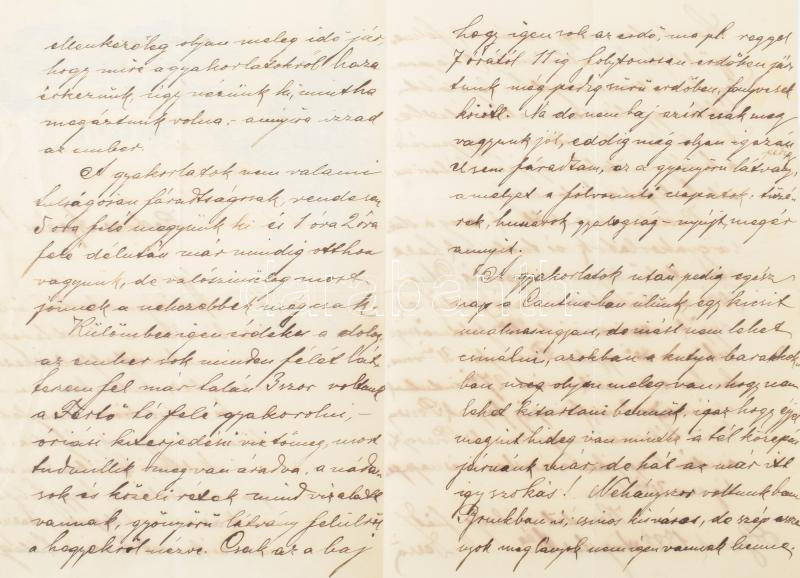 ellenkezőleg olyan meleg idő jár,
hogy mire a gyakorlatokról haza
érkezünk, úgy nézünk ki, mintha
megáztunk volna, - annyira izzad
az ember.
A gyakorlatok nem valami
túlságosan fáradtságosak, rendesen
5 óra felé megyünk ki és 1 óra 2 óra
felé délután már mindig otthon
vagyunk, de valószinüleg most
jönnek a nehezebbek még csak.
Külömben igen érdekes a dolog,
az ember sok minden félét lát,
fel már talán 3szor voltunk
a Fertő tó felé gyakorolni, -
óriási kiterjedésü viztömeg, most
tudniillik meg van áradva, a nádasok
sok és közeli rétek mind viz alatt
vannak, gyönyörü látvány felülről
a hegyekről nézve. Csak az a baj
hogy igen sok az erdő, ma pl. reggel
7 órától 11 ig folytonosan erdőben jártunk
még pedig sürü erdőben, fenyvesek
között. Na de nem baj azért csak meg
vagyunk jól, eddig még olyan igazán
el sem fáradtam, ez a gyönyörü látvány,
a melyet a fölvonuló csapatok, tüzérek,
huszárok gyalogság - nyújt, megér
annyit.
A gyakorlatok után pedig egész
nap a Cantineban ülünk egy kicsit
unalmasan, de mást nem lehet
csinálni, azokban a kutya barakokban
meg olyan meleg van, hogy nem
lehet kitartani bennük, igaz hogy éjjel
megint hideg van mintha a tél közepén
járnánk már, de hát az már itt
igy szokás! Néhányszor voltunk benn
Bruckban is, csinos kis város, de szép
meg lányok nem igen vannak benne.
darabanth